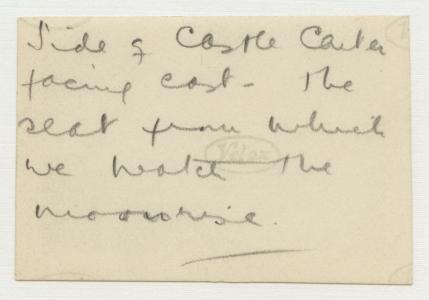 Side of Castle Carter
facing east - The
seat from which
we watch the
moonrise.
Velox